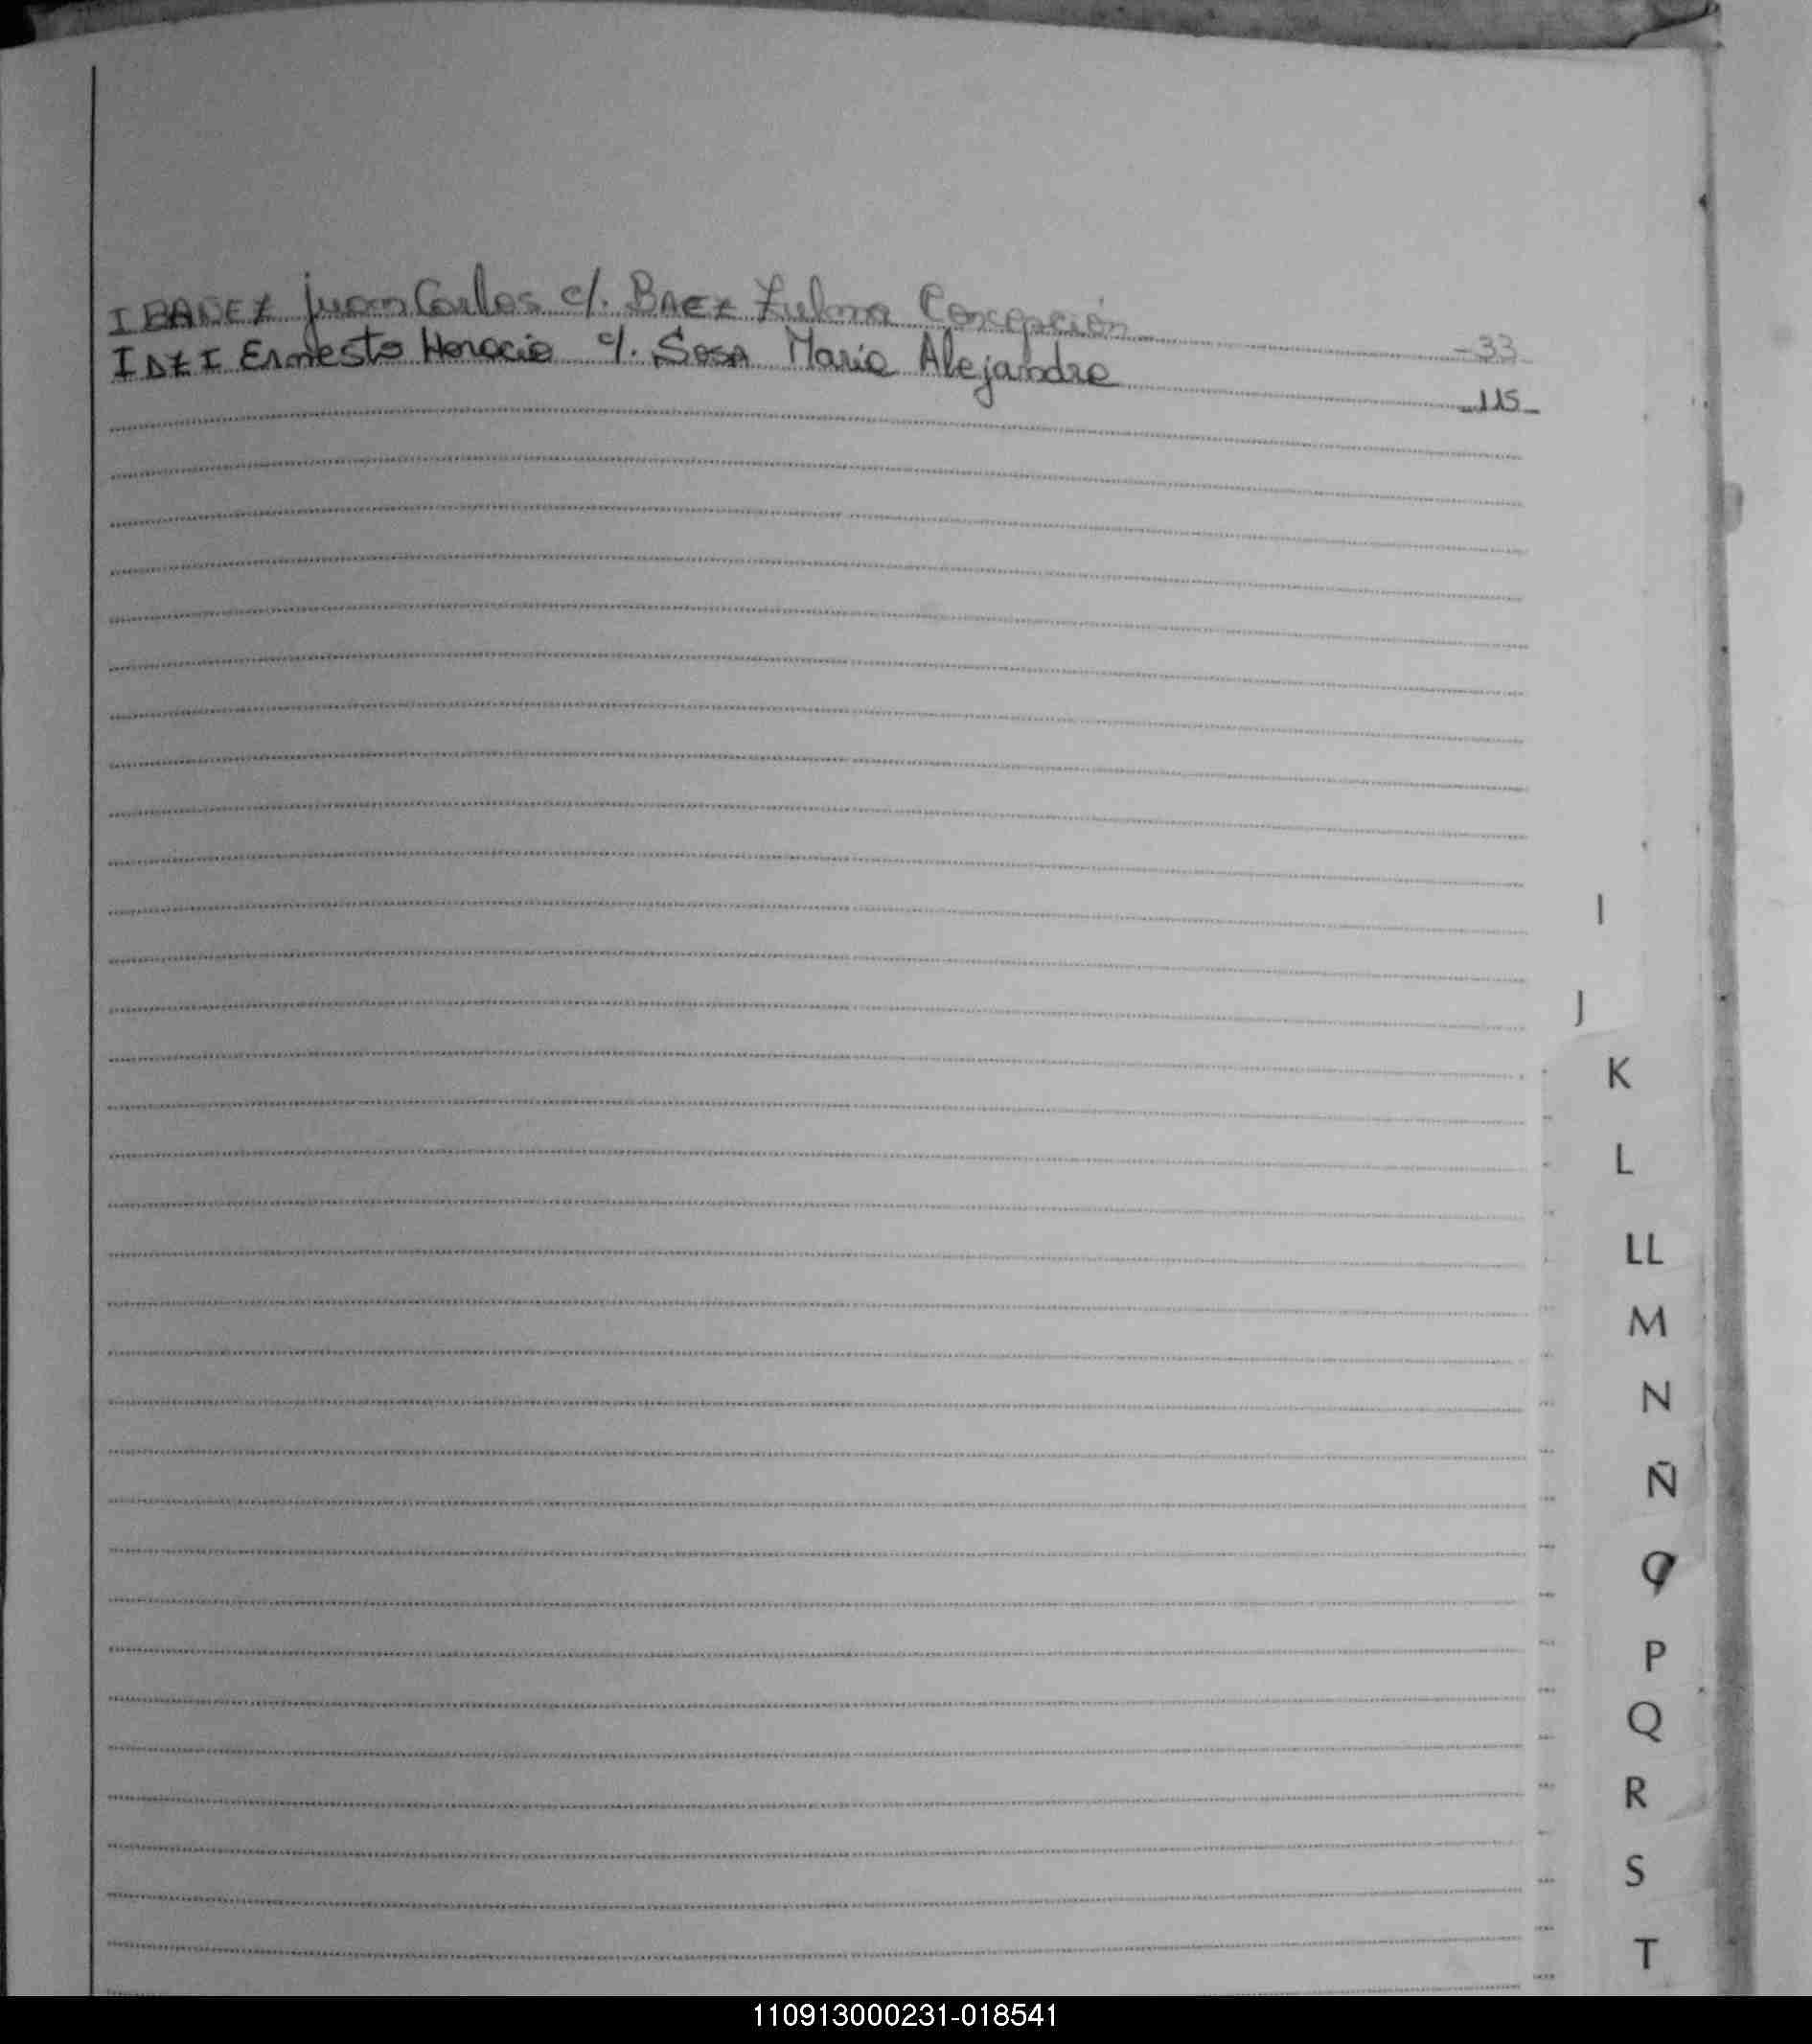 IBAÑEZ Juan Carlos c/. BAEZ Zulma Concepción 33
IDZI Ernesto Horacio c/. SOSA Maria Alejandra 115
I
J
K
L
LL
M
N
Ñ
O
P
Q
R
S
T
110913000231-018541